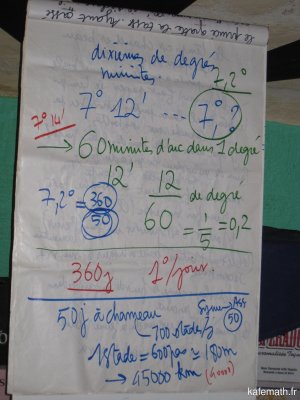 dixièmes de degrés
minutes.
7,2°
7° 12' ... 7°,?
7° 14'
→ 60 minutes d'arc dans 1 degré
12'
12
60
de degré
= 1
5
= 0,2
7,2° = 360
50
360j 1°/jour.
50j à chameau
Syène → Alex
50
700 stades/j
1 stade = 600 pas ≃ 180m
→ 45000 km (40000)
kafemath.fr